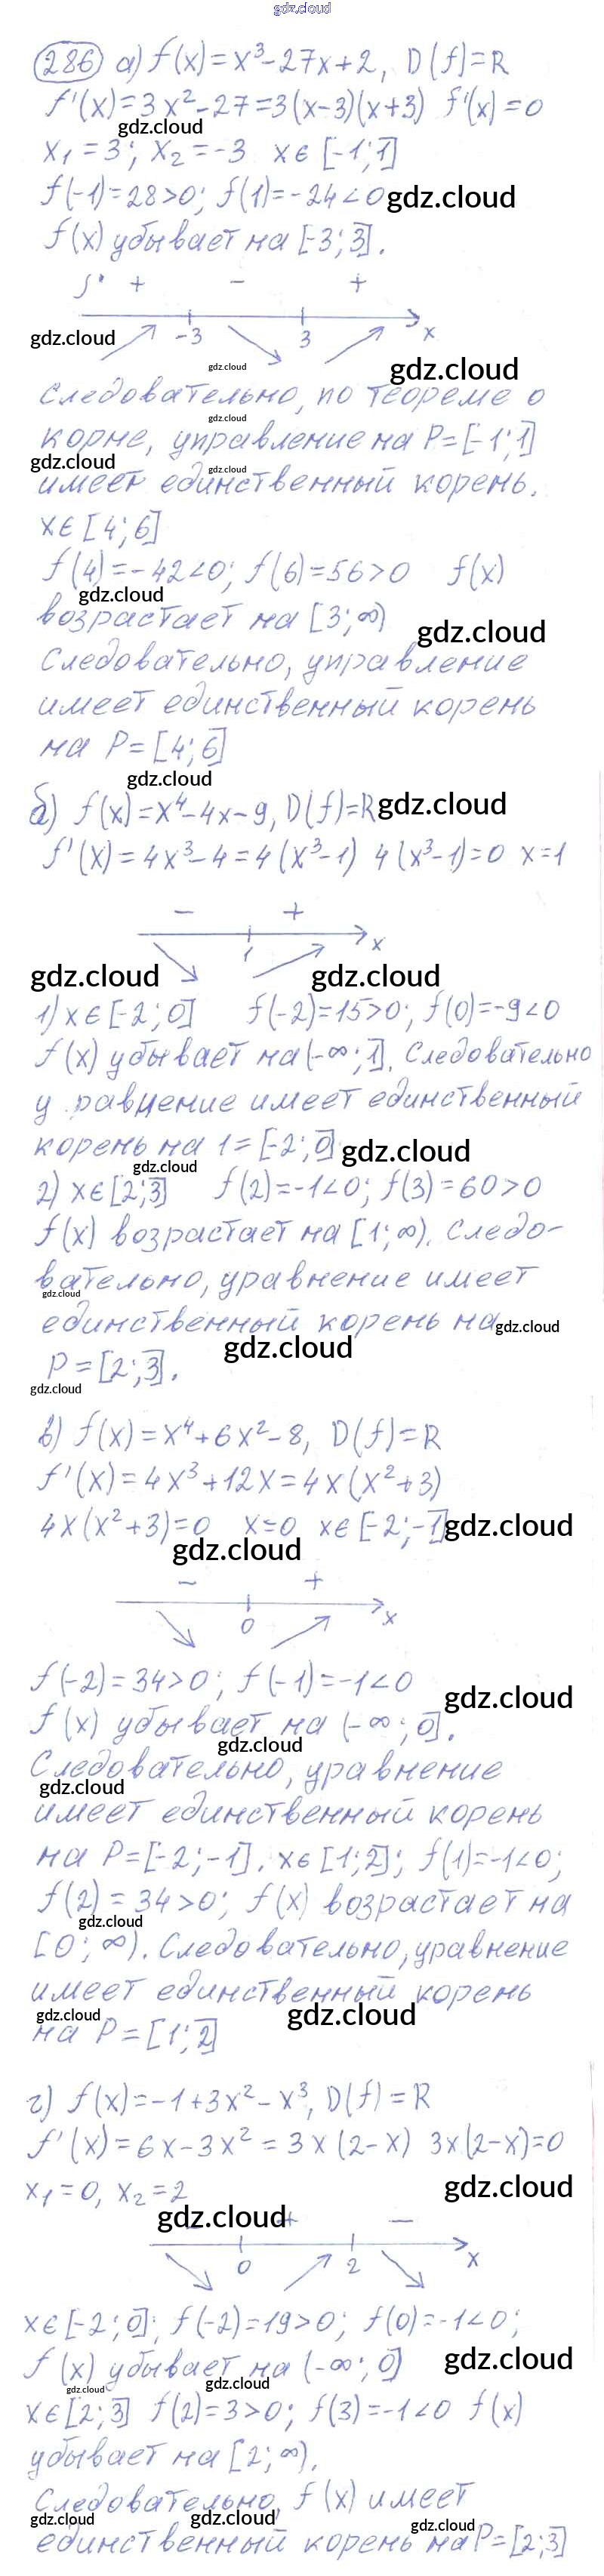 gdz.cloud
286 а) f(x)=x³-27x+2, D(f)=R
f'(x)=3x²-27=3(x-3)(x+3) f'(x)=0
gdz.cloud
x₁=3; x₂=-3 x∈[-1;1]
f(-1)=28>0; f(1)=-24<0 gdz.cloud
f(x) убывает на [-3;3].
f' + - +
-3 3 x
gdz.cloud gdz.cloud gdz.cloud
Следовательно, по теореме о
gdz.cloud
корне, управление на P=[-1;1]
gdz.cloud gdz.cloud
имеет единственный корень.
x∈[4;6]
f(4)=-42<0; f(6)=56>0 f(x)
gdz.cloud
возрастает на [3;∞)
gdz.cloud
Следовательно, управление
имеет единственный корень
на P=[4;6]
gdz.cloud
б) f(x)=x⁴-4x-9, D(f)=R gdz.cloud
f'(x)=4x³-4=4(x³-1) 4(x³-1)=0 x=1
- +
1 x
gdz.cloud gdz.cloud
1) x∈[-2;0] f(-2)=15>0; f(0)=-9<0
f(x) убывает на (-∞;1]. Следовательно
уравнение имеет единственный
корень на 1=[-2;0] gdz.cloud
gdz.cloud
2) x∈[2;3] f(2)=-1<0; f(3)=60>0
f(x) возрастает на [1;∞). Следо-
вательно, уравнение имеет
gdz.cloud
единственный корень на gdz.cloud
gdz.cloud
P=[2;3].
gdz.cloud
в) f(x)=x⁴+6x²-8, D(f)=R
f'(x)=4x³+12x=4x(x²+3)
4x(x²+3)=0 x=0 x∈[-2;-1] gdz.cloud
gdz.cloud
- +
0 x
f(-2)=34>0; f(-1)=-1<0
gdz.cloud
f(x) убывает на (-∞;0].
gdz.cloud
Следовательно, уравнение
gdz.cloud
имеет единственный корень
на P=[-2;-1]. x∈[1;2]; f(1)=-1<0;
f(2)=34>0; f(x) возрастает на
gdz.cloud
[0;∞). Следовательно, уравнение
имеет единственный корень
gdz.cloud gdz.cloud
на P=[1;2]
г) f(x)=-1+3x²-x³, D(f)=R
f'(x)=6x-3x²=3x(2-x) 3x(2-x)=0
x₁=0, x₂=2 gdz.cloud
gdz.cloud
- + -
0 2 x
x∈[-2;0]; f(-2)=19>0; f(0)=-1<0;
f(x) убывает на (-∞;0] gdz.cloud
gdz.cloud gdz.cloud
x∈[2;3] f(2)=3>0; f(3)=-1<0 f(x)
убывает на [2;∞).
Следовательно, f(x) имеет
gdz.cloud gdz.cloud gdz.cloud
единственный корень на P=[2;3]